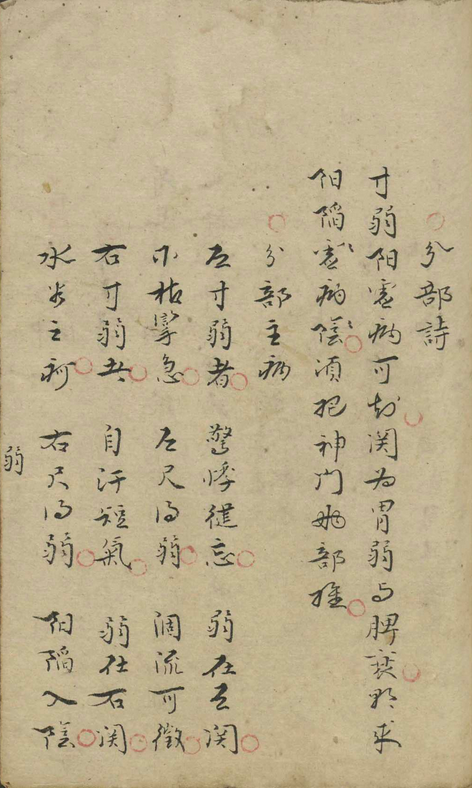 分部詩
寸弱陽虛病可知関為胃弱与脾衰欲求
陽陷虛病陰須把神門两部推
分部主病
左寸弱者 驚悸健忘 弱在左関
木枯攣急 左尺得弱 涸流可徵
右寸弱兮 自汗短氣 弱在右関
水谷之疴 右尺得弱 陽陷入陰
弱